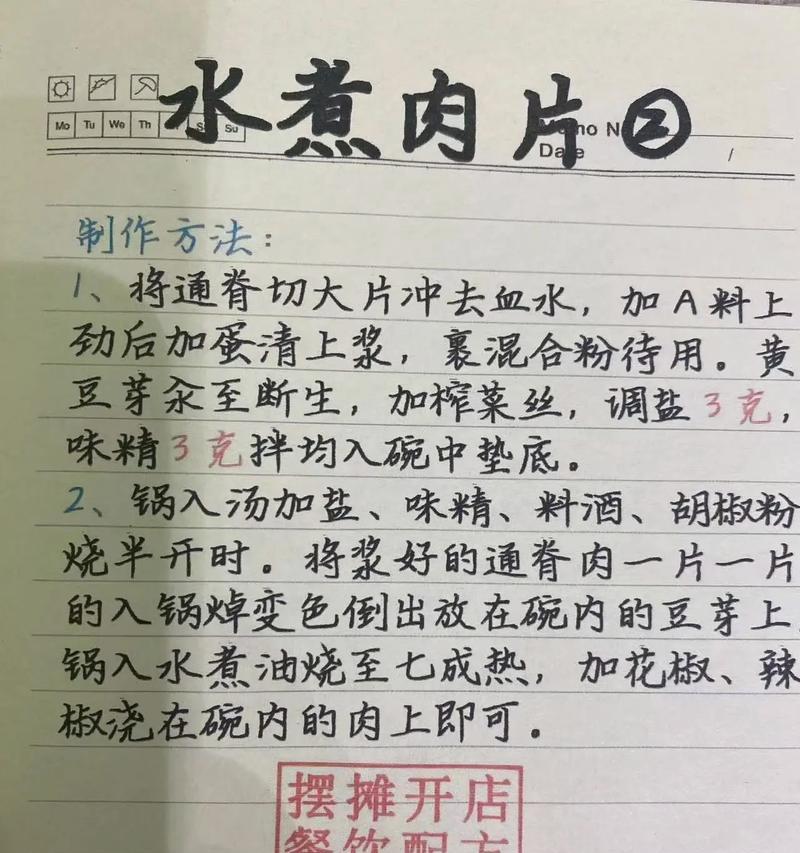 水煮肉片②
Mo Tu We Th S Su
Date /
制作方法：
1、将通脊切大片冲去血水，加A料上
劲后加蛋清上浆，裹混合粉待用。黄
豆芽汆至断生，加榨菜丝，调盐3克，
味精3克拌均入碗中垫底。
2、锅入汤加盐、味精、料酒、胡椒粉
烧半开时。将浆好的通脊肉一片一片
的入锅焯变色倒出放在碗内的豆芽上
锅入水煮油烧至七成热，加花椒、辣
椒浇在碗内的肉上即可。
摆摊开店
餐饮配方